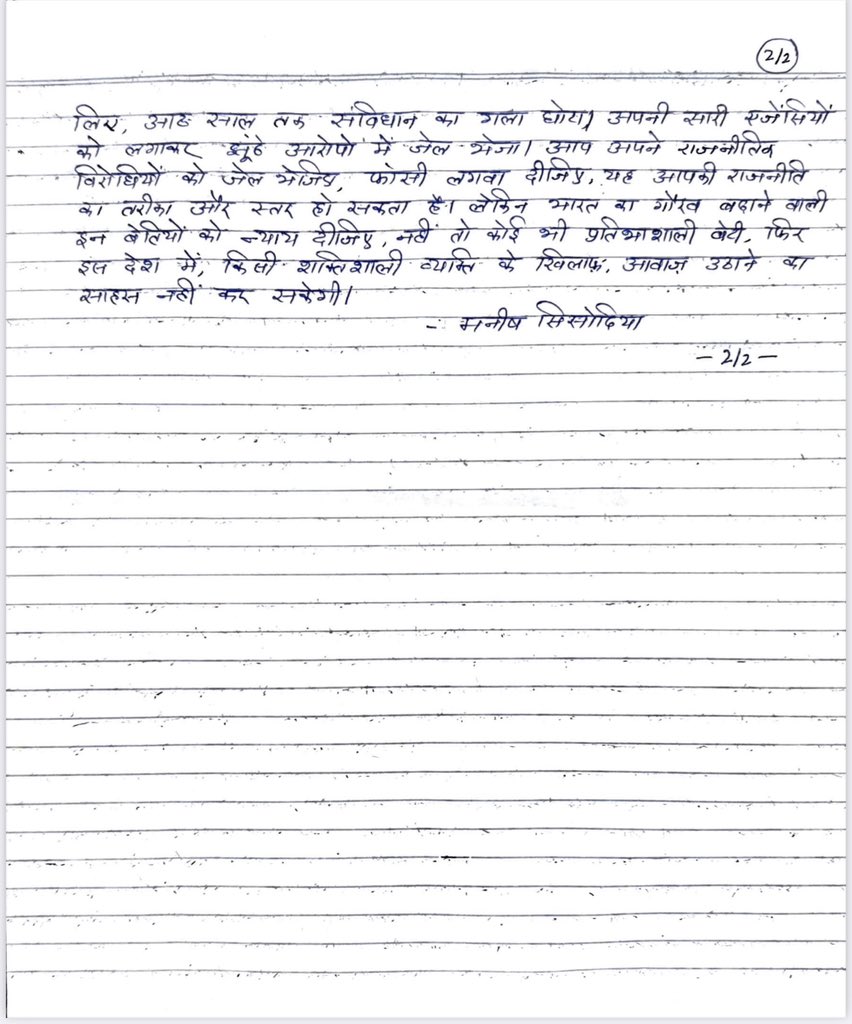 2/2
लिए, आठ साल तक संविधान का गला घोटा, अपनी सारी एजेंसियों
को लगाकर झूंठे आरोपो में जेल भेजा। आप अपने राजनीतिक
विरोधियों को जेल भेजिए, फांसी लगवा दीजिए, यह आपकी राजनीति
का तरीका और स्तर हो सकता है। लेकिन भारत का गौरव बढ़ाने वाली
इन बेतियों को न्याय दीजिए, नहीं तो कोई भी प्रतिभाशाली बेटी, फिर
इस देश में, किसी शक्तिशाली व्यक्ति के खिलाफ़, आवाज़ उठाने का
साहस नहीं कर सकेगी।
- मनीष सिसोदिया
- 2/2 -